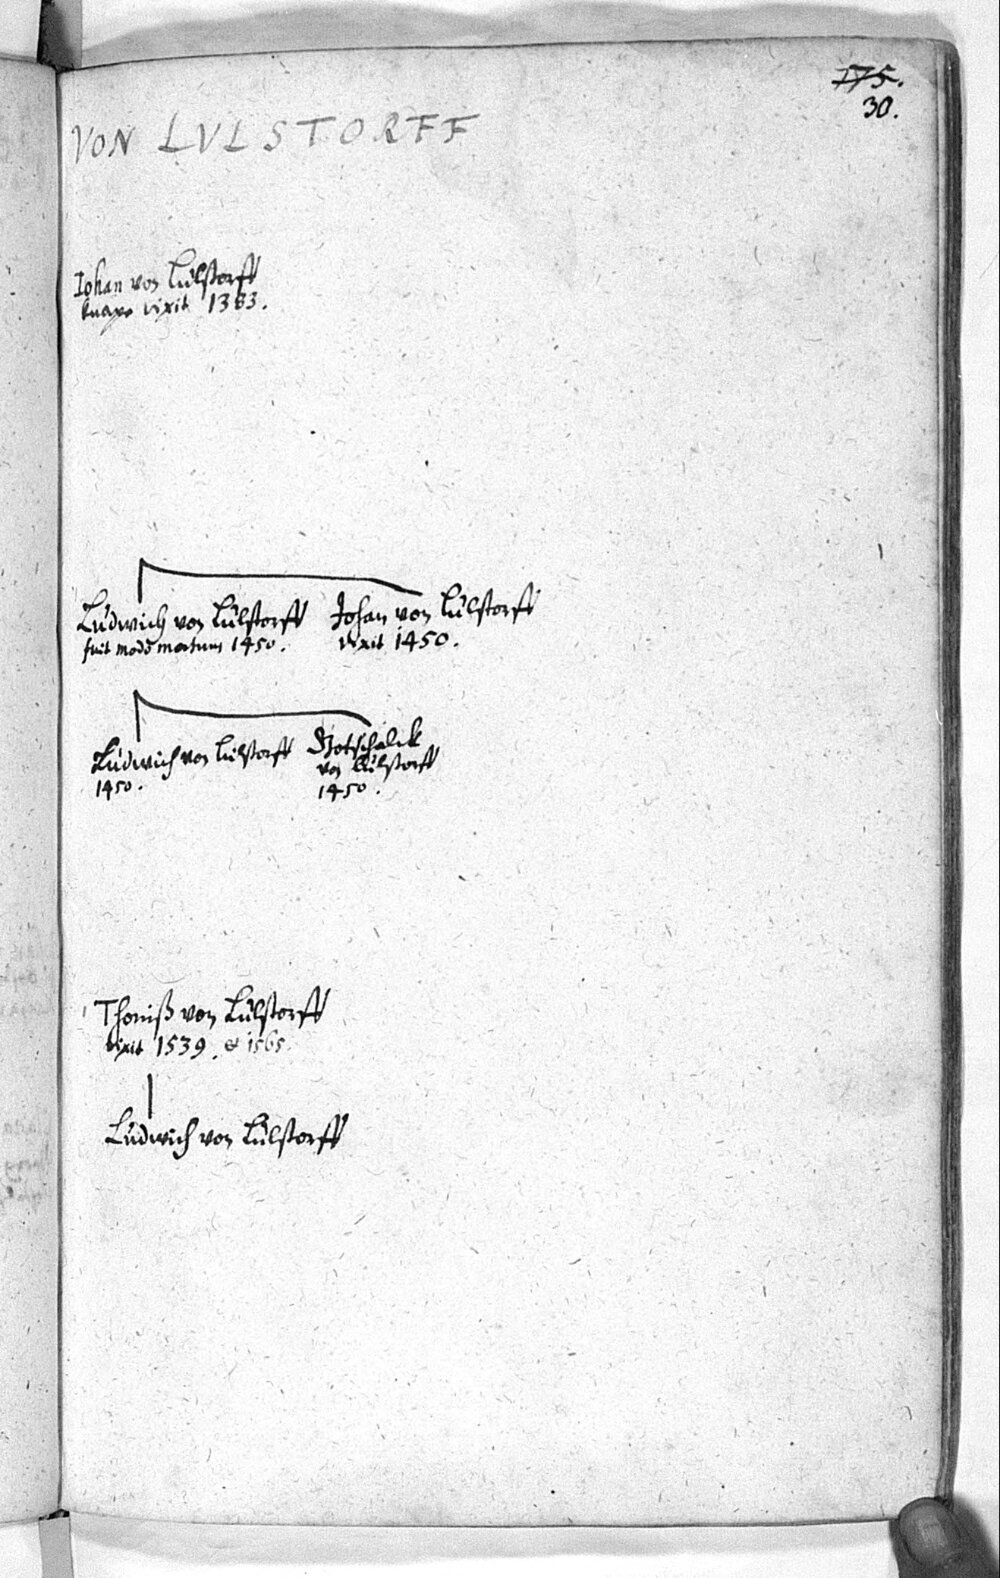 175.
30.
VON LVLSTORFF
Johan von Lülstorff
knape vixit 1383.
Ludwich von Lülstorff
fuit modo mortuus 1450.
Johan von Lülstorff
vixit 1450.
Ludwich von Lülstorff
1450.
Gotschalck
von Lülstorff
1450.
Thoniß von Lülstorff
vixit 1539. & 1565.
Ludwich von Lülstorff